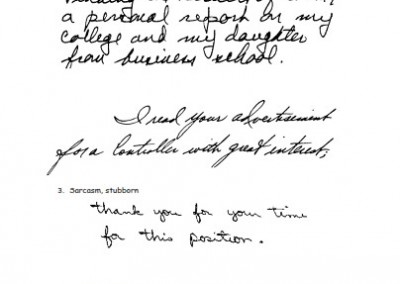 a personal report on my
college and my daughter
from business school.
I read your advertisement
for a Controller with great interest,
3. Sarcasm, stubborn
thank you for your time
for this position.